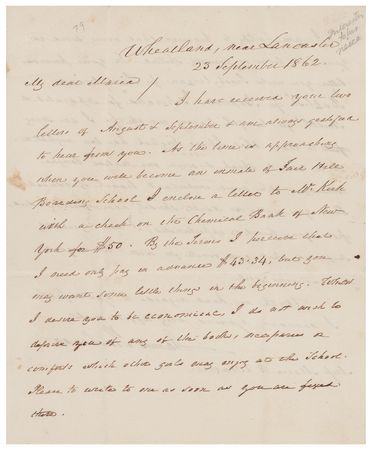 79
Wheatland, near Lancaster
23 September 1862.
My dear Maria /
I have received your two
letters of August & September & am always gratified
to hear from you. As the time is approaching
when you will become an inmate of Fair Hill
Boarding School I enclose a letter to Mr. Kirk
with a check on the Chemical Bank of New
York for $50. By the Terms I perceive that
I need only pay in advance $43.34, but you
may want some little things in the beginning. Whilst
I desire you to be economical, I do not wish to
deprive you of any of the books, or
comforts which other girls may enjoy at the School.
Please to write to me as soon as you are fixed
there.